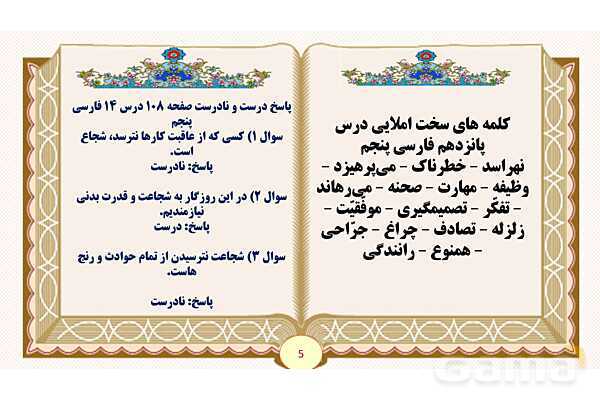 کلمه های سخت املایی درس
پانزدهم فارسی پنجم
نهراسد - خطرناک - می‌پرهیزد -
وظیفه - مهارت - صحنه - می‌رهاند
- تفکّر - تصمیمگیری - موفقیّت -
زلزله - تصادف - چراغ - جرّاحی
- همنوع - رانندگی
پاسخ درست و نادرست صفحه ۱۰۸ درس ۱۴ فارسی
پنجم
سوال ۱) کسی که از عاقبت کارها نترسد، شجاع
است.
پاسخ: نادرست
سوال ۲) در این روزگار به شجاعت و قدرت بدنی
نیازمندیم.
پاسخ: درست
سوال ۳) شجاعت نترسیدن از تمام حوادث و رنج
هاست.
پاسخ: نادرست
5
Gama